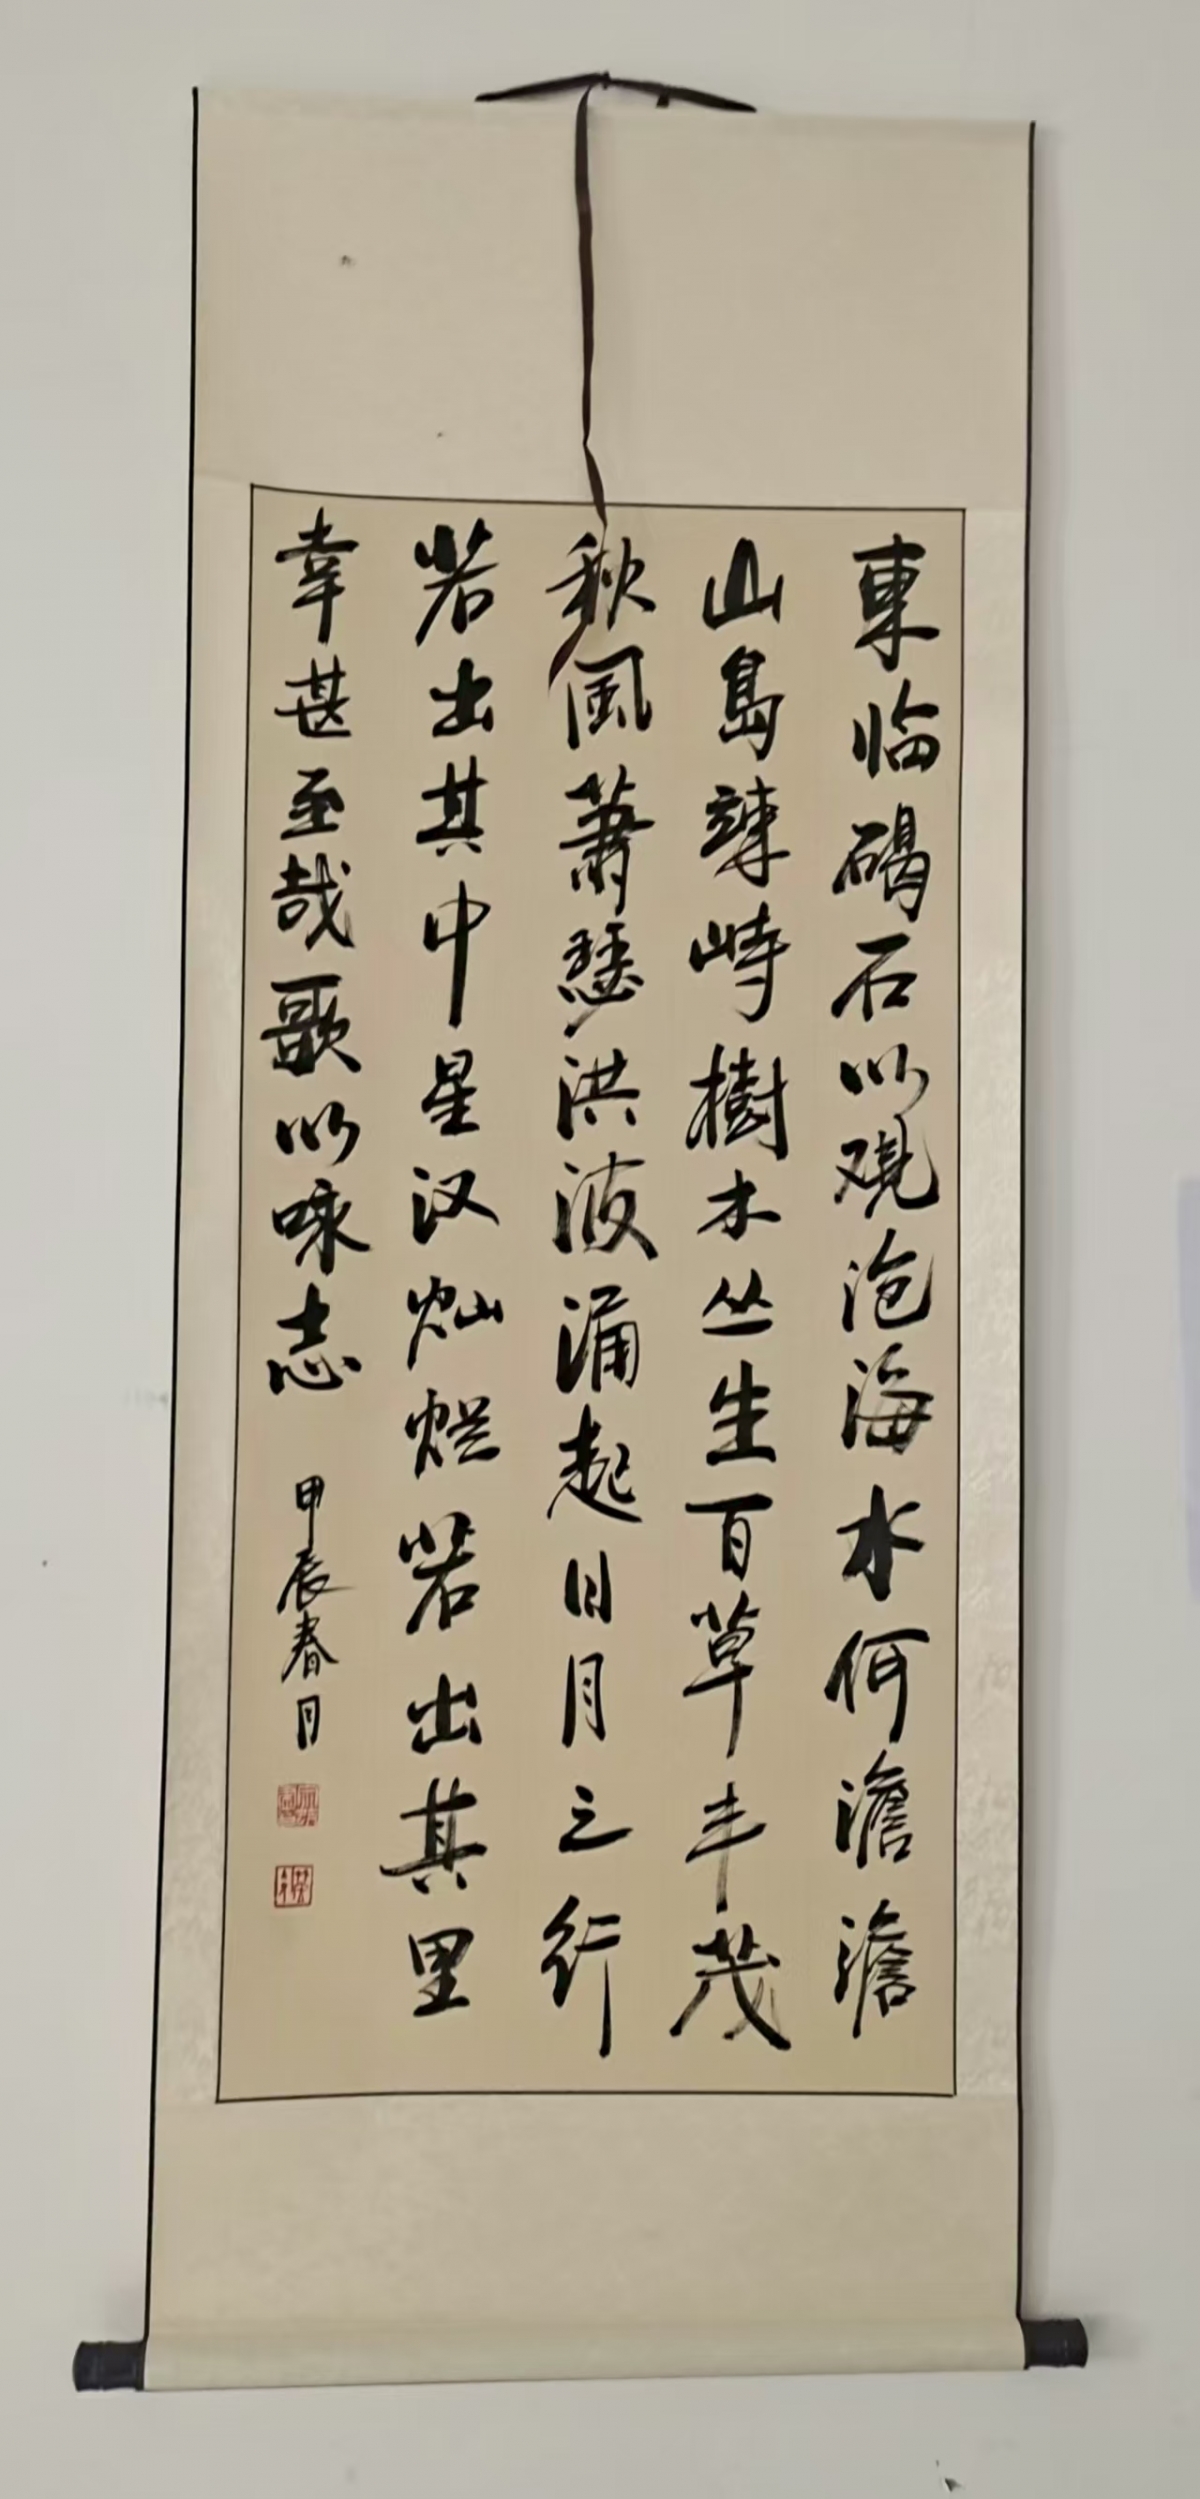 東临碣石以观沧海水何澹澹
山島竦峙樹木丛生百草丰茂
秋風萧瑟洪波涌起日月之行
若出其中星汉灿烂若出其里
幸甚至哉歌以咏志
甲辰春月